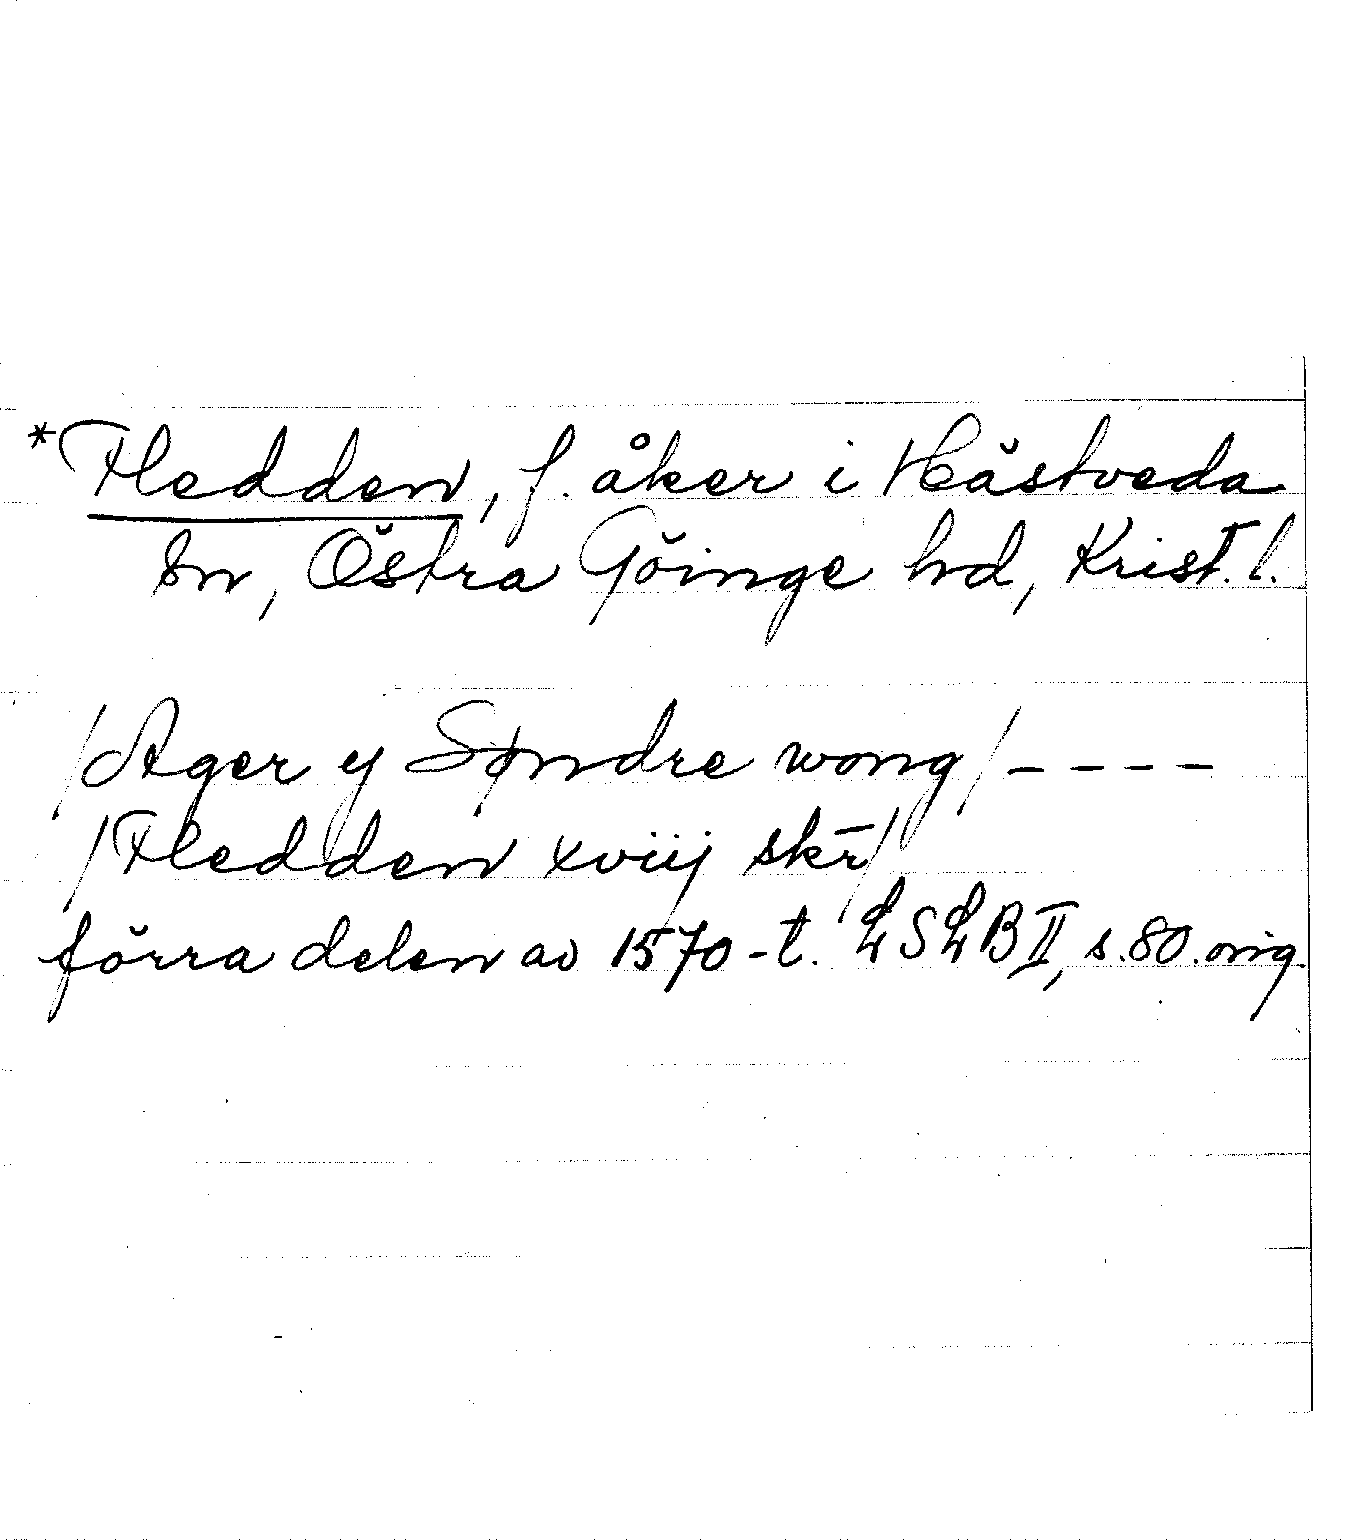 *Fledden, f. åker i Hästveda
sn, Östra Göinge hd, Krist. l.
/Ager y Søndre wong/ - - - -
/Fledden xviij skr̄/
förra delen av 1570-t. LSLB II, s. 80. orig.